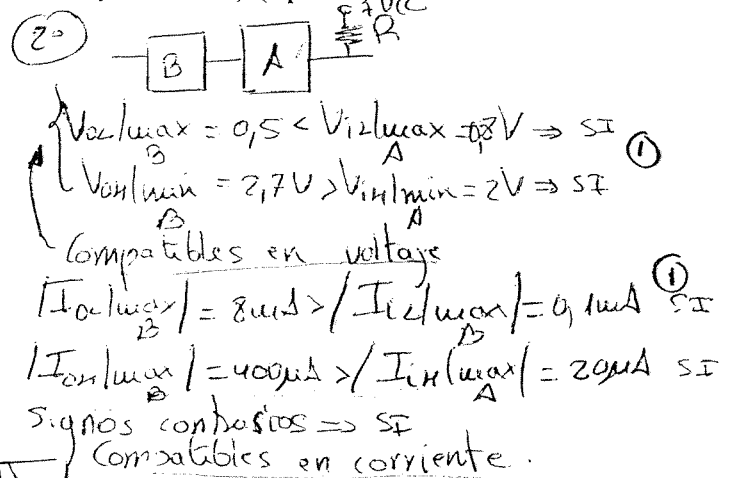 2º
+Vcc
R
B A
VOL|max B = 0,5 < VIL|max A = 0,8V ⇒ SI ①
VOH|min B = 2,7V > VIH|min A = 2V ⇒ SI
Compatibles en voltaje
|IOL|max B| = 8mA > |IIL|max A| = 0,1mA ① SI
|IOH|max B| = 400µA > |IIH|max A| = 20µA SI
Signos contrarios ⇒ SI
Compatibles en corriente.